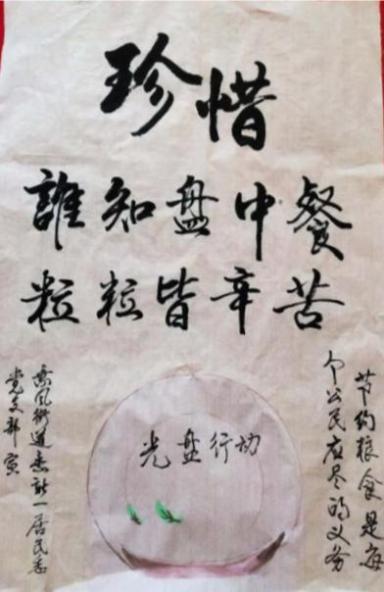 珍惜
誰知盘中餐
粒粒皆辛苦
节约粮食是每
个公民应尽的义务
光盘行动
风街道
一居民委
党支部宣